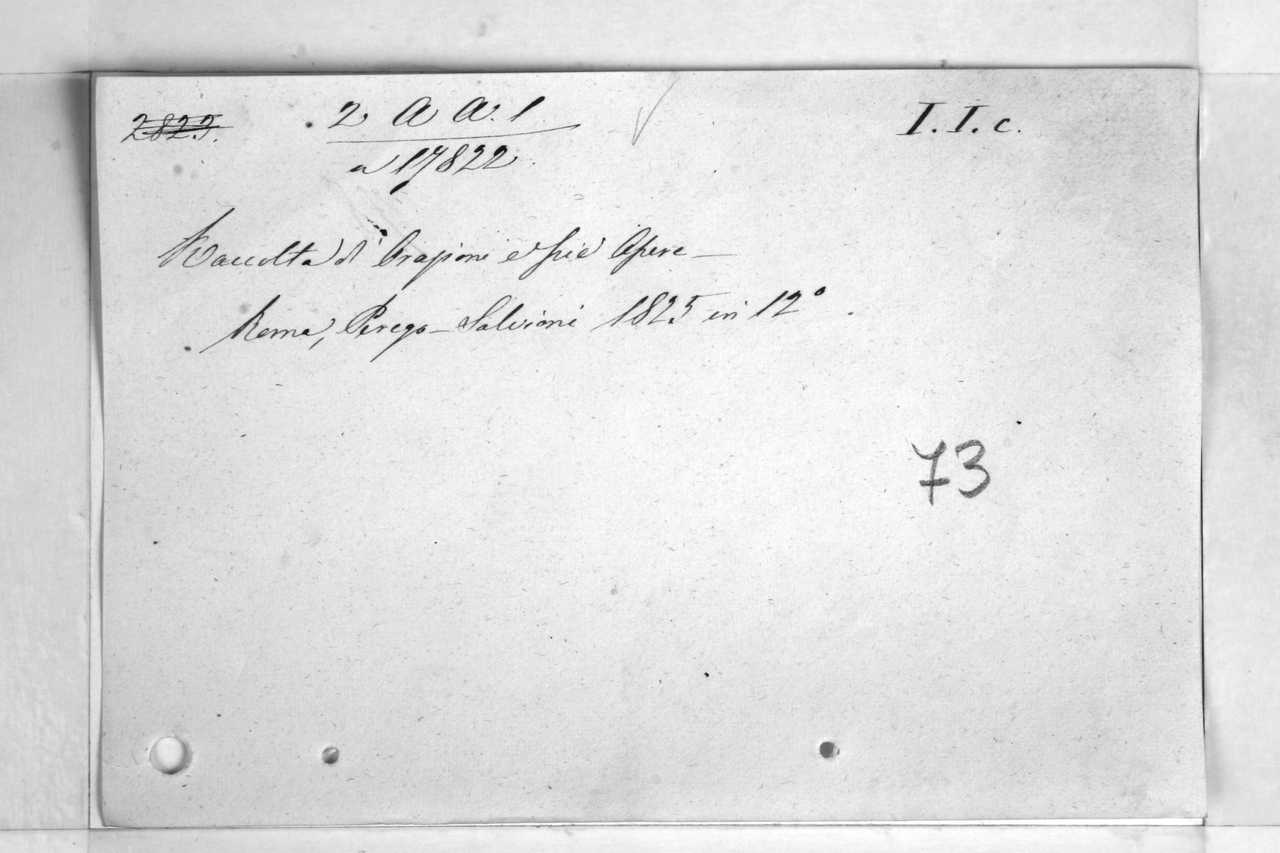 2825.
2 A A. 1
a 17822
I. I. c.
Raccolta di Orazioni e Pie Opere —
Roma, Perego-Salvioni 1825 in 12°
73